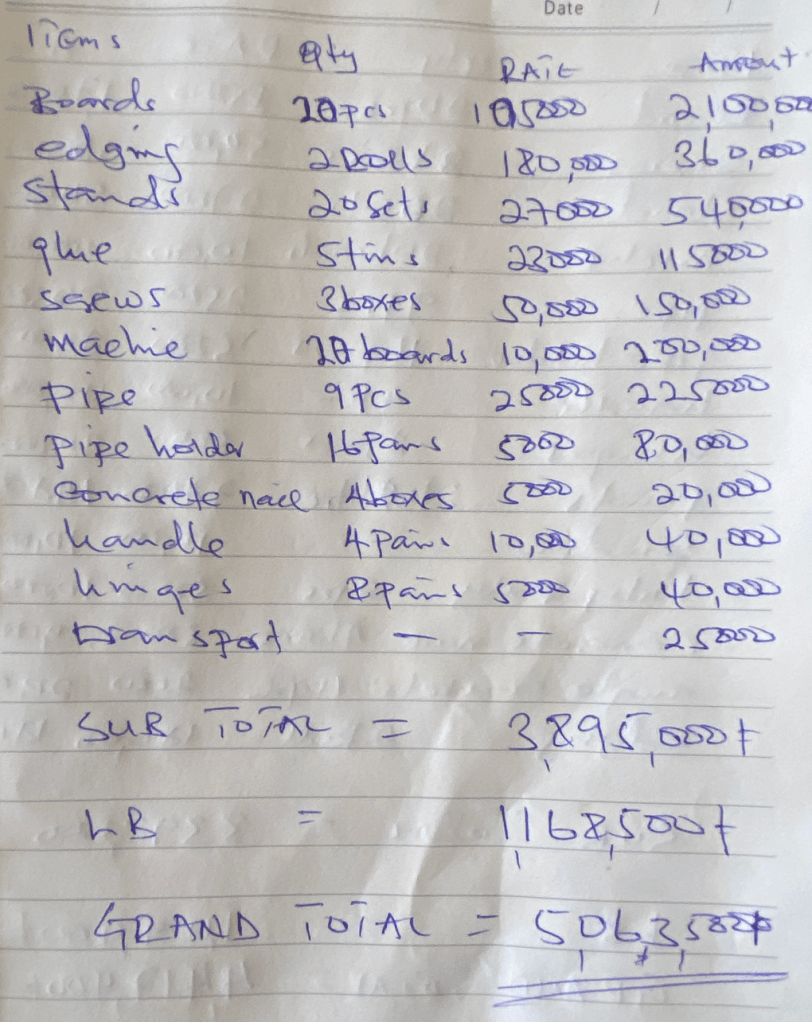 Date / /
Items Qty RATE Amount
Boards 20pcs 105000 2,100,000
edging 2 Rolls 180,000 360,000
Stands 20 Sets 27000 540,000
glue 5tins 23000 115000
screws 3boxes 50,000 150,000
machie 20 boards 10,000 200,000
pipe 9 Pcs 25000 225000
pipe holder 16pairs 5000 80,000
Concrete nail 4boxes 5000 20,000
handle 4 Pairs 10,000 40,000
hinges 8 pairs 5000 40,000
transport — — 25000
SUB TOTAL = 3,895,000
LB = 1,168,500
GRAND TOTAL = 5,063,500